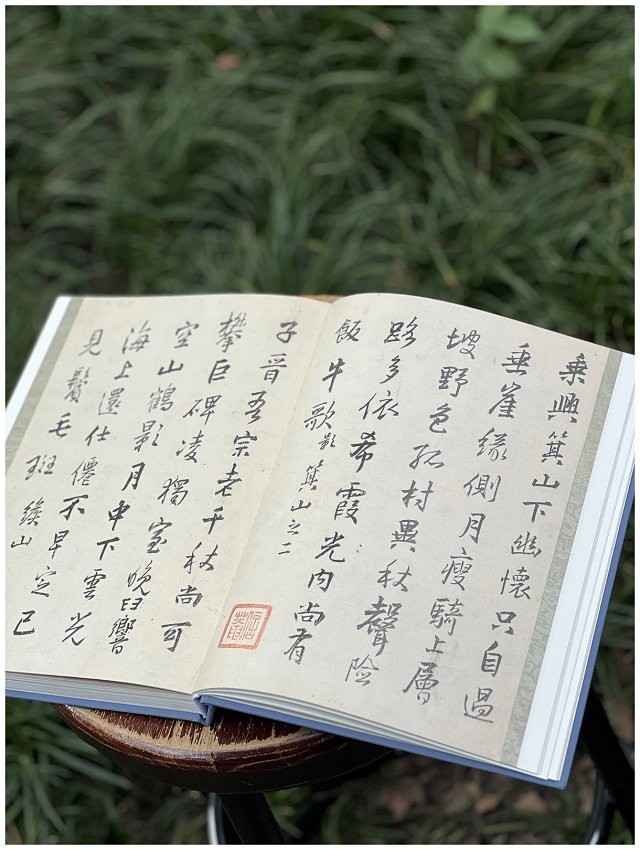 乘興箕山下幽懷只自過
垂崖緣側月瘦騎上層
坡野色孤村異秋聲險
路多依希霞光内尚有
飯牛歌 箕山之二
子晉吾宗老千秋尚可
攀巨碑凌獨室晚臼響
空山鶴影月中下雲光
海上還仕僊不早定已
見鬢毛斑 緱山